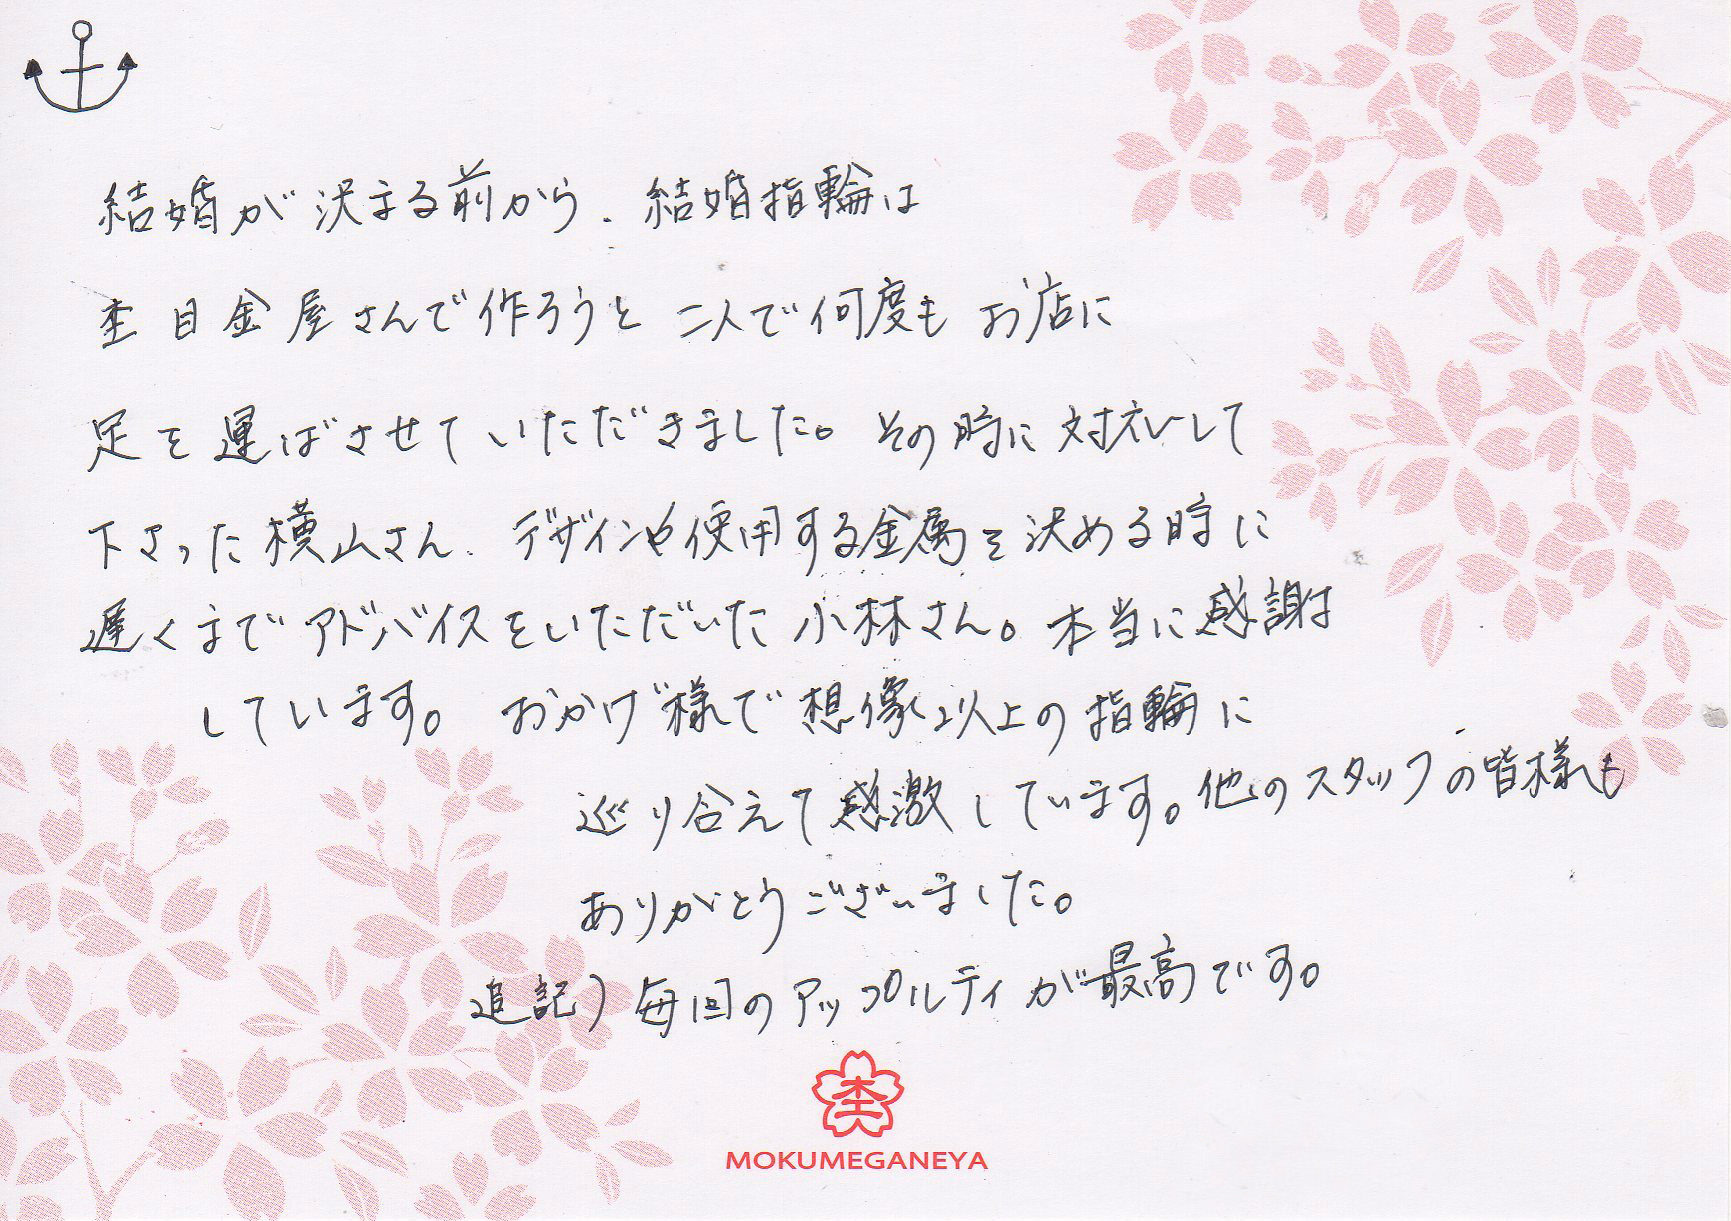 結婚が決まる前から、結婚指輪は
杢目金屋さんで作ろうと二人で何度もお店に
足を運ばさせていただきました。その時に対応して
下さった横山さん、デザインや使用する金属を決める時に
遅くまでアドバイスをいただいた小林さん。本当に感謝
しています。おかげ様で想像以上の指輪に
巡り合えて感激しています。他のスタッフの皆様も
ありがとうございました。
追記）毎回のアップルティが最高です。
杢
MOKUMEGANEYA